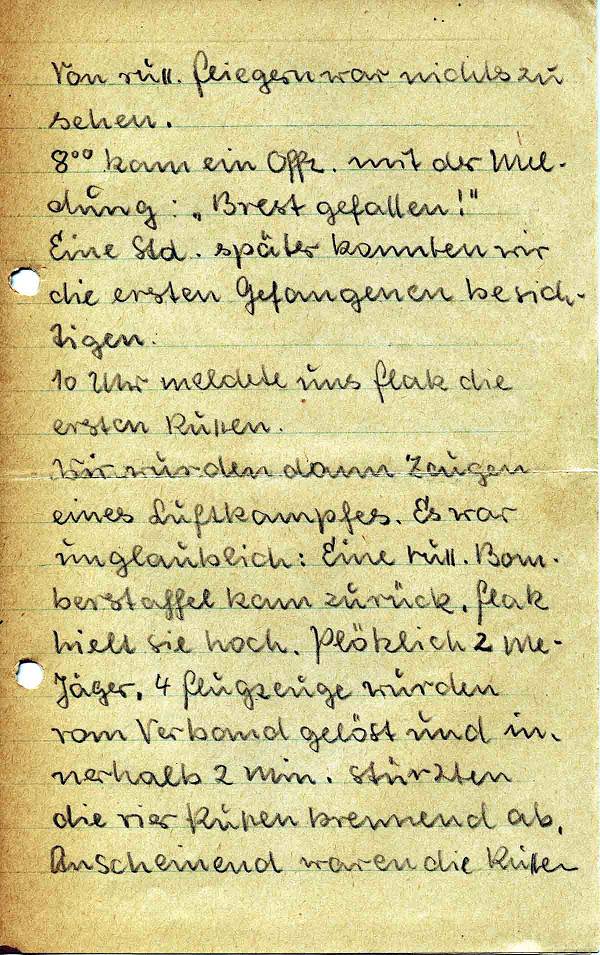 Von russ. Fliegern war nichts zu
sehen.
8⁰⁰ kam ein Offz. mit der Mel-
dung: „Brest gefallen!"
Eine Std. später konnten wir
die ersten Gefangenen besich-
tigen.
10 Uhr meldete uns Flak die
ersten Russen.
Wir wurden dann Zeugen
eines Luftkampfes. Es war
unglaublich: Eine russ. Bom-
berstaffel kam zurück. Flak
hielt sie hoch. Plötzlich 2 Me-
Jäger. 4 Flugzeuge wurden
vom Verband gelöst und in-
nerhalb 2 Min. stürzten
die vier Russen brennend ab.
Anscheinend waren die Russen